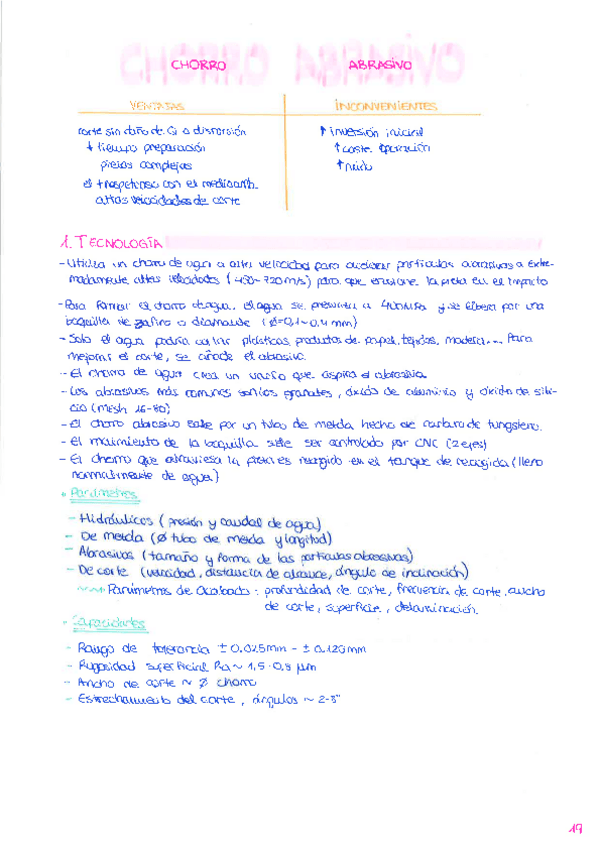 CHORRO ABRASIVO
VENTAJAS
corte sin daño de Q o distorsión
↓ tiempo preparación
piezas complejas
el + respetuoso con el medioamb.
altas velocidades de corte
INCONVENIENTES
↑ inversión inicial
↑ coste operación
↑ ruido
1. TECNOLOGÍA
- Utiliza un chorro de agua a alta velocidad para acelerar partículas abrasivas a extre-
madamente altas velocidades (450-720m/s) para que erosione la pieza en el impacto
- Para formar el chorro de agua, el agua se presuriza a 400MPa y se libera por una
boquilla de zafiro o diamante (Ø=0,1~0,4 mm)
- Solo el agua podría cortar plásticos, productos de papel, tejidos, madera... Para
mejorar el corte, se añade el abrasivo.
- El chorro de agua crea un vacío que aspira el abrasivo.
- Los abrasivos más comunes son los granates, óxido de aluminio y óxido de sili-
cio (mesh 16-80)
- El chorro abrasivo sale por un tubo de mezcla hecho de carburo de tungsteno.
- El movimiento de la boquilla suele ser controlado por CNC (2 ejes)
- El chorro que atraviesa la pieza es recogido en el tanque de recogida (lleno
normalmente de agua)
• Parámetros
- Hidráulicos (presión y caudal de agua)
- De mezcla (Ø tubo de mezcla y longitud)
- Abrasivos (tamaño y forma de las partículas abrasivas)
- De corte (velocidad, distancia de alcance, ángulo de inclinación)
Parámetros de acabado: profundidad de corte, frecuencia de corte, ancho
de corte, superficie, delaminación.
• Capacidades
- Rango de tolerancia ± 0.025mm - ± 0.120mm
- Rugosidad superficial Ra ~ 1,5-0,8 µm
- Ancho de corte ~ Ø chorro
- Estrechamiento del corte, ángulos ~ 2-3º
19